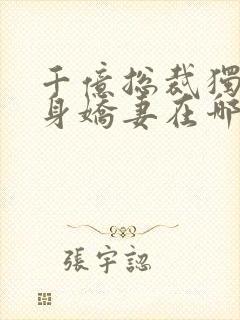 千億總裁獨
身嬌妻在哪
張宇認